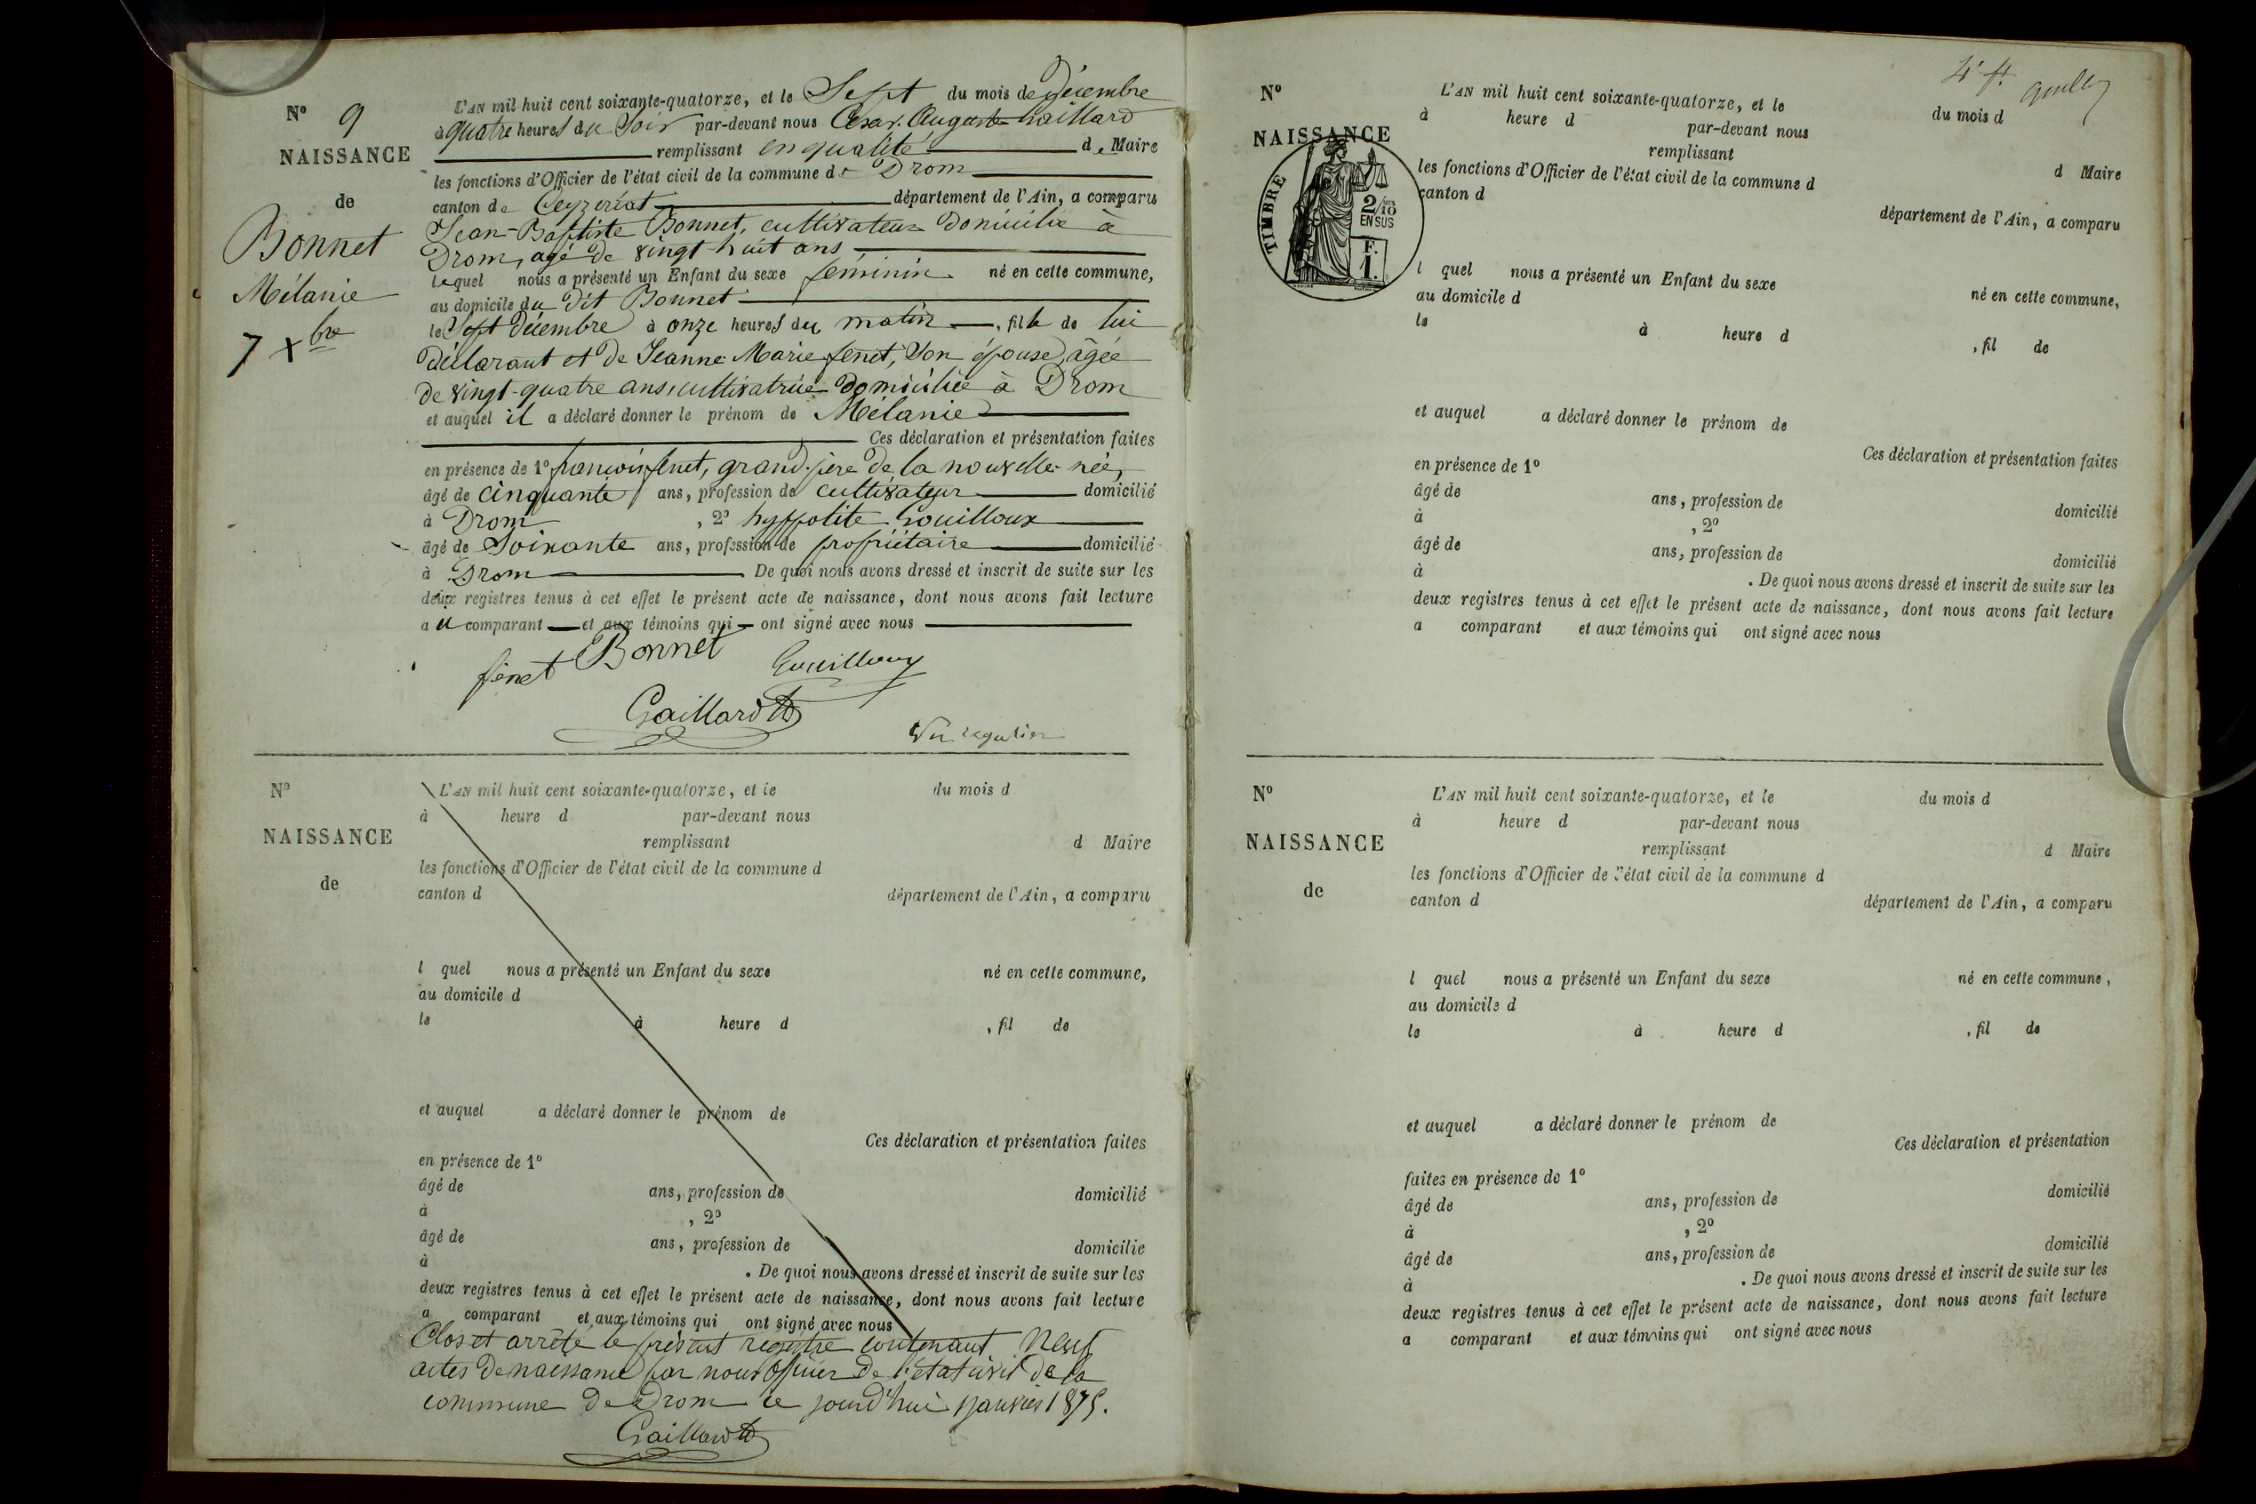 N° 9
NAISSANCE
de
Bonnet
Mélanie
7 Xbre
L'AN mil huit cent soixante-quatorze, et le Sept du mois de Décembre
à quatre heures du Soir par-devant nous César Auguste Gaillard
remplissant en qualité de Maire
les fonctions d'Officier de l'état civil de la commune de Drom
canton de Ceyzeriat département de l'Ain, a comparu
Jean-Baptiste Bonnet, cultivateur domicilié à
Drom, agé de vingt huit ans
lequel nous a présenté un Enfant du sexe feminin né en cette commune,
au domicile du dit Bonnet
le Sept Décembre à onze heures du matin, fille de lui
déclarant et de Jeanne Marie fenet, son épouse, âgée
de vingt-quatre ans, cultivatrice domiciliée à Drom
et auquel il a déclaré donner le prénom de Mélanie
Ces déclaration et présentation faites
en présence de 1° françois fenet, grand-père de la nouvelle-née,
âgé de cinquante ans, profession de cultivateur domicilié
à Drom, 2° hyppolite Gouilloux
âgé de Soixante ans, profession de propriétaire domicilié
à Drom De quoi nous avons dressé et inscrit de suite sur les
deux registres tenus à cet effet le présent acte de naissance, dont nous avons fait lecture
au comparant et aux témoins qui ont signé avec nous
fenet Bonnet Gouilloux
Gaillard
Vu régulier
N°
NAISSANCE
de
L'AN mil huit cent soixante-quatorze, et le du mois d
à heure d par-devant nous
remplissant d Maire
les fonctions d'Officier de l'état civil de la commune d
canton d département de l'Ain, a comparu
l quel nous a présenté un Enfant du sexe né en cette commune,
au domicile d
le à heure d , fil de
et auquel a déclaré donner le prénom de
Ces déclaration et présentation faites
en présence de 1°
âgé de ans, profession de domicilié
à , 2°
âgé de ans, profession de domicilie
à . De quoi nous avons dressé et inscrit de suite sur les
deux registres tenus à cet effet le présent acte de naissance, dont nous avons fait lecture
a comparant et aux témoins qui ont signé avec nous
Clos et arrêté le présent registre contenant Neuf
actes de naissance par nous Officier de l'état civil de la
commune de Drom ce jourd'hui janvier 1875.
Gaillard
4e ft.
N°
NAISSANCE
TIMBRE
2/10 EN SUS
F. 1.
L'AN mil huit cent soixante-quatorze, et le du mois d
à heure d par-devant nous
remplissant d Maire
les fonctions d'Officier de l'état civil de la commune d
canton d département de l'Ain, a comparu
l quel nous a présenté un Enfant du sexe né en cette commune,
au domicile d
le à heure d , fil de
et auquel a déclaré donner le prénom de
Ces déclaration et présentation faites
en présence de 1°
âgé de ans, profession de domicilié
à , 2°
âgé de ans, profession de domicilié
à . De quoi nous avons dressé et inscrit de suite sur les
deux registres tenus à cet effet le présent acte de naissance, dont nous avons fait lecture
a comparant et aux témoins qui ont signé avec nous
N°
NAISSANCE
de
L'AN mil huit cent soixante-quatorze, et le du mois d
à heure d par-devant nous
remplissant d Maire
les fonctions d'Officier de l'état civil de la commune d
canton d département de l'Ain, a comparu
l quel nous a présenté un Enfant du sexe né en cette commune,
au domicile d
le à heure d , fil de
et auquel a déclaré donner le prénom de
Ces déclaration et présentation
faites en présence de 1°
âgé de ans, profession de domicilié
à , 2°
âgé de ans, profession de domicilié
à . De quoi nous avons dressé et inscrit de suite sur les
deux registres tenus à cet effet le présent acte de naissance, dont nous avons fait lecture
a comparant et aux témoins qui ont signé avec nous